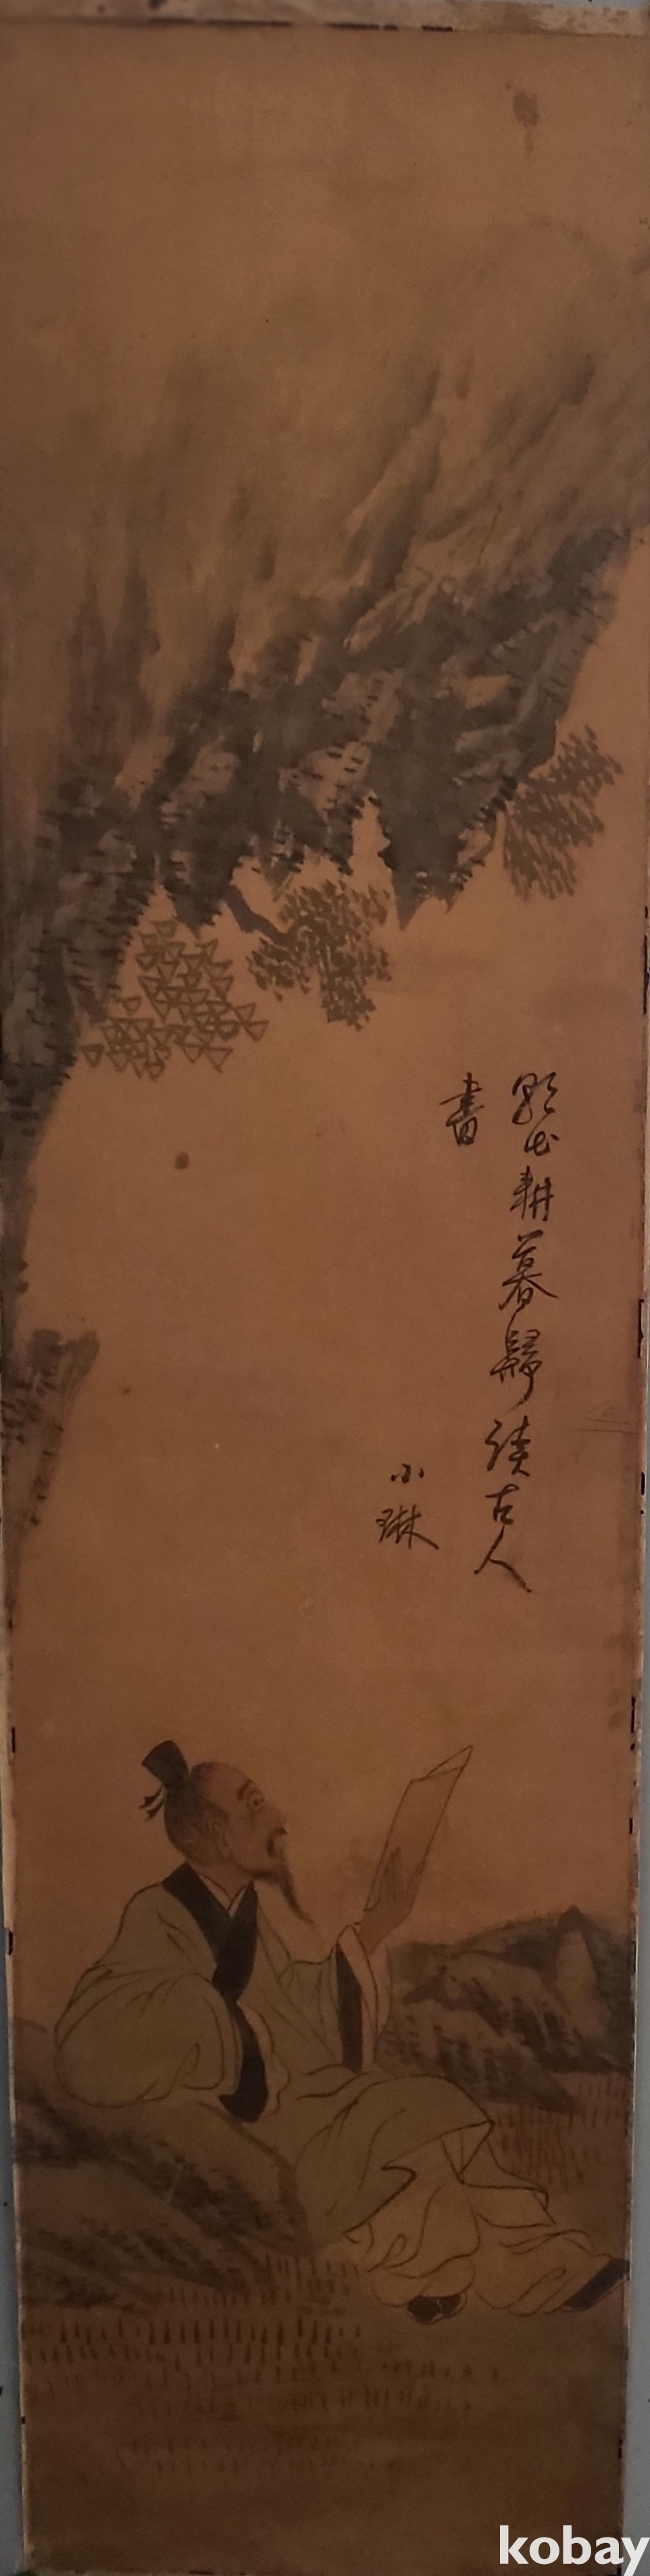 朝出耕暮歸讀古人
書
小琳
kobay